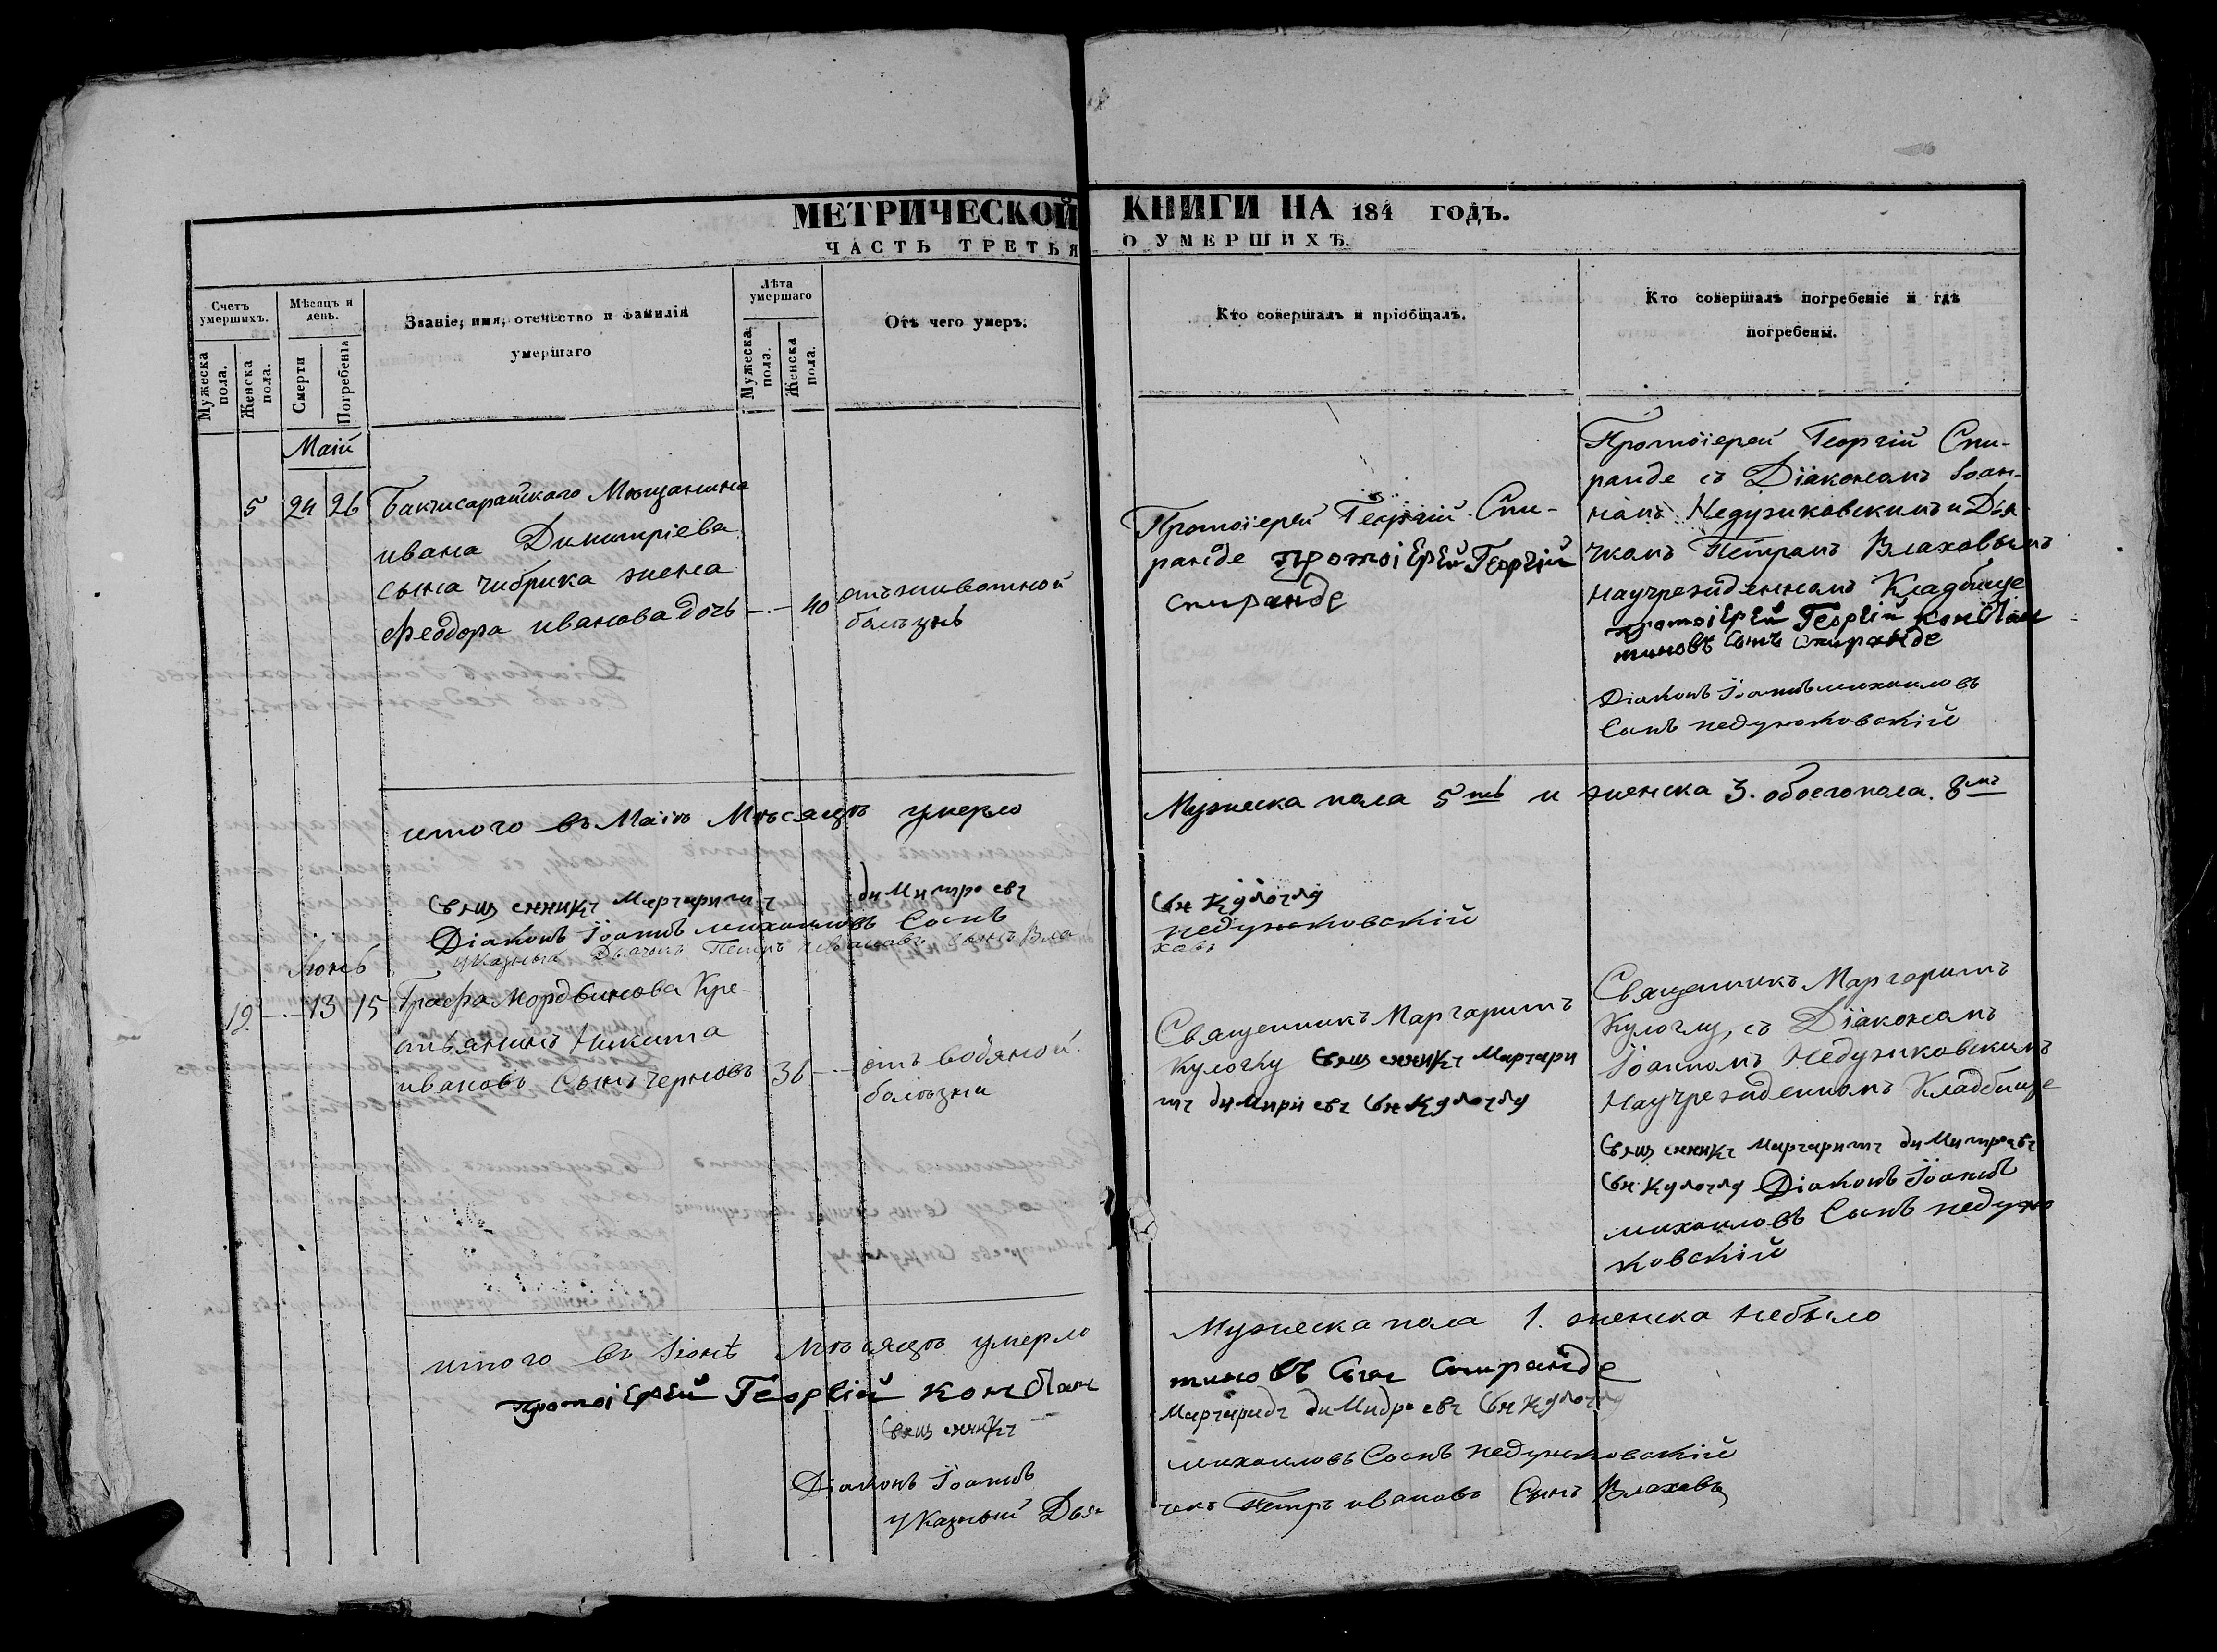 МЕТРИЧЕСКОЙ КНИГИ НА 184 ГОДЪ.
ЧАСТЬ ТРЕТЬЯ О УМЕРШИХЪ.
Счетъ умершихъ.
Мужеска пола.
Женска пола.
Мѣсяцъ и день.
Смерти
Погребенія
Званіе, имя, отечество и фамилія
умершаго
Лѣта умершаго
Мужеска пола.
Женска пола.
Отъ чего умеръ.
Кто совершалъ и пріобщалъ.
Кто совершалъ погребеніе и гдѣ
погребены.
Маій
5 24 26 Бакчисарайскаго Мѣщанина
ивана Димитріева
сына чибрика жена
Феодора иванова дочь — 40 отъ животной
болѣзнь
Протоіерей Георгій Спи-
ранде протоіерей Георгій
спиранде
Протоіерей Георгій Спи-
ранде съ Діакономъ Іоан-
номъ Недужковскимъ и Дья
чкомъ Петромъ Влаховымъ
научрежденномъ Кладбище
протоіерей Георгій констан
тиновъ сынъ спиранде
Діаконъ Іоаннъ михаиловъ
Сынъ недужковскій
итого въ Маіѣ Мѣсяцѣ умерло Мужеска пола 5ть и женска 3. обоего пола. 8мь
Священникъ Маргаритъ димитровъ сын Кулоглу
Діаконъ Іоаннъ михаиловъ Сынъ недужковскій
Указный Дьячокъ Петръ ивановъ сынъ Влаховъ
Іюнь
19 — 13 15 Графа Мордвинова Кре-
стьянинъ Никита
ивановъ Сынъ черновъ 36 — отъ водяной
болѣзни
Священникъ Маргаритъ
Кулоглу Священникъ Маргари
тъ димириевъ сын Кулоглу
Священникъ Маргаритъ
Кулоглу, съ Діакономъ
Іоанномъ Недужковскимъ
научрежденномъ Кладбище
Священникъ Маргаритъ димитровъ
сын Кулоглу Діаконъ Іоаннъ
михаиловъ Сынъ недуж
ковскій
итого въ Іюнѣ Мѣсяцѣ умерло Мужеска пола 1. женска небыло
протоіерей Георгій константиновъ сын спиранде
Священникъ Маргаридъ димидровъ сын Кулоглу
Діаконъ Іоаннъ михаиловъ Сынъ недужковскій
Указный Дьячекъ Петръ ивановъ Сынъ Влаховъ